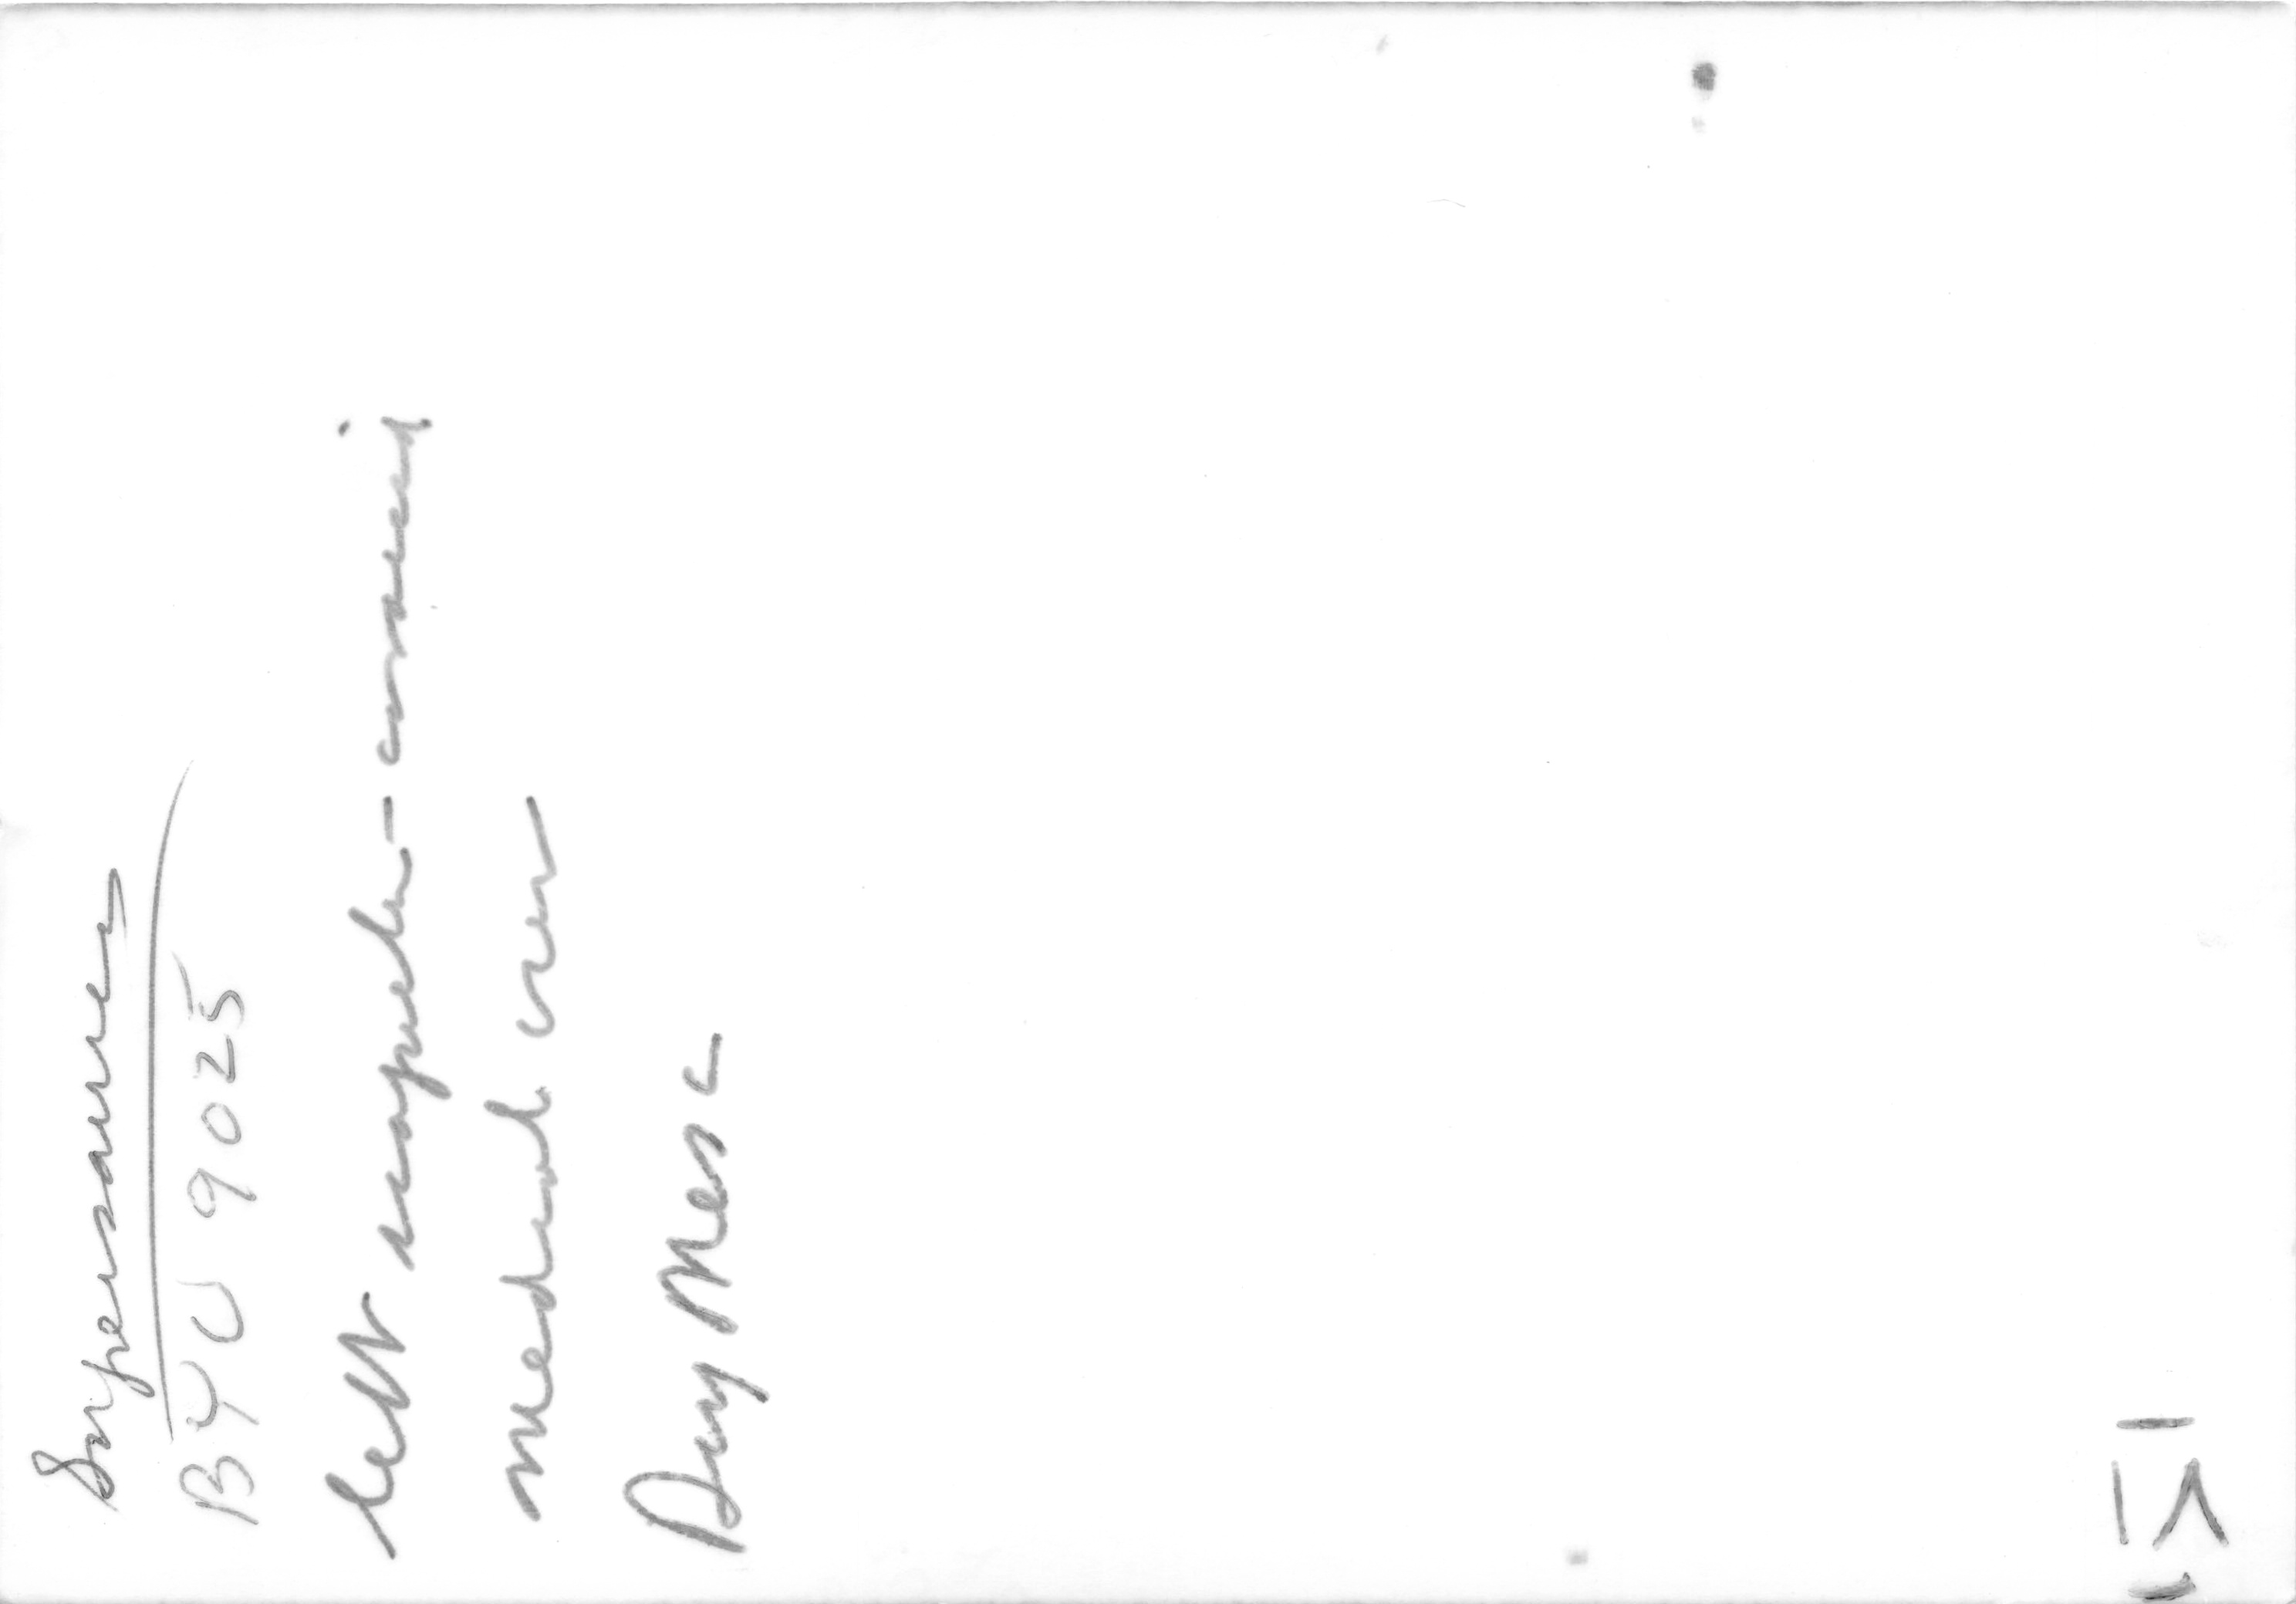 Supersaurus
BYU 9025
left scapula-coracoid
medial view
Dry Mesa